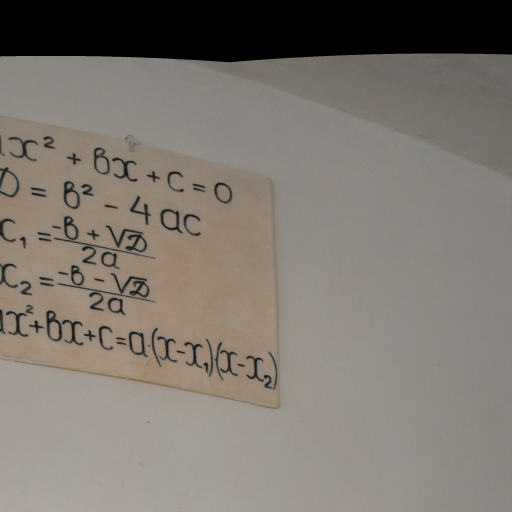 ax² + bx + c = 0
D = b² - 4ac
x₁ = (-b + √D) / 2a
x₂ = (-b - √D) / 2a
ax² + bx + c = a·(x-x₁)(x-x₂)